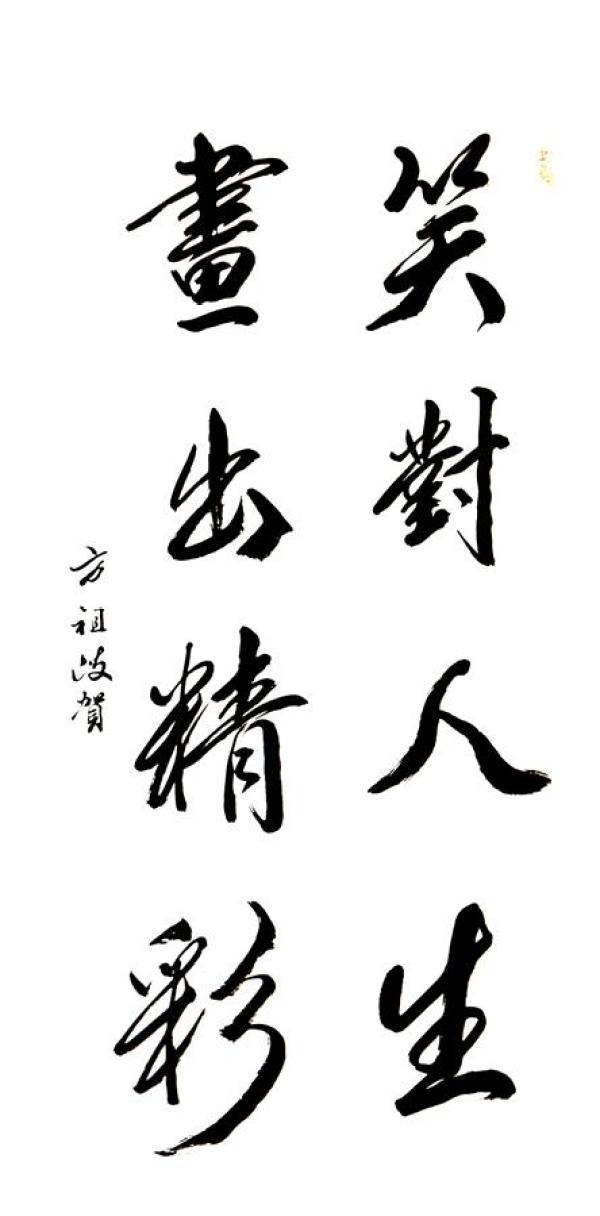 笑對人生
畫出精彩
方祖岐賀